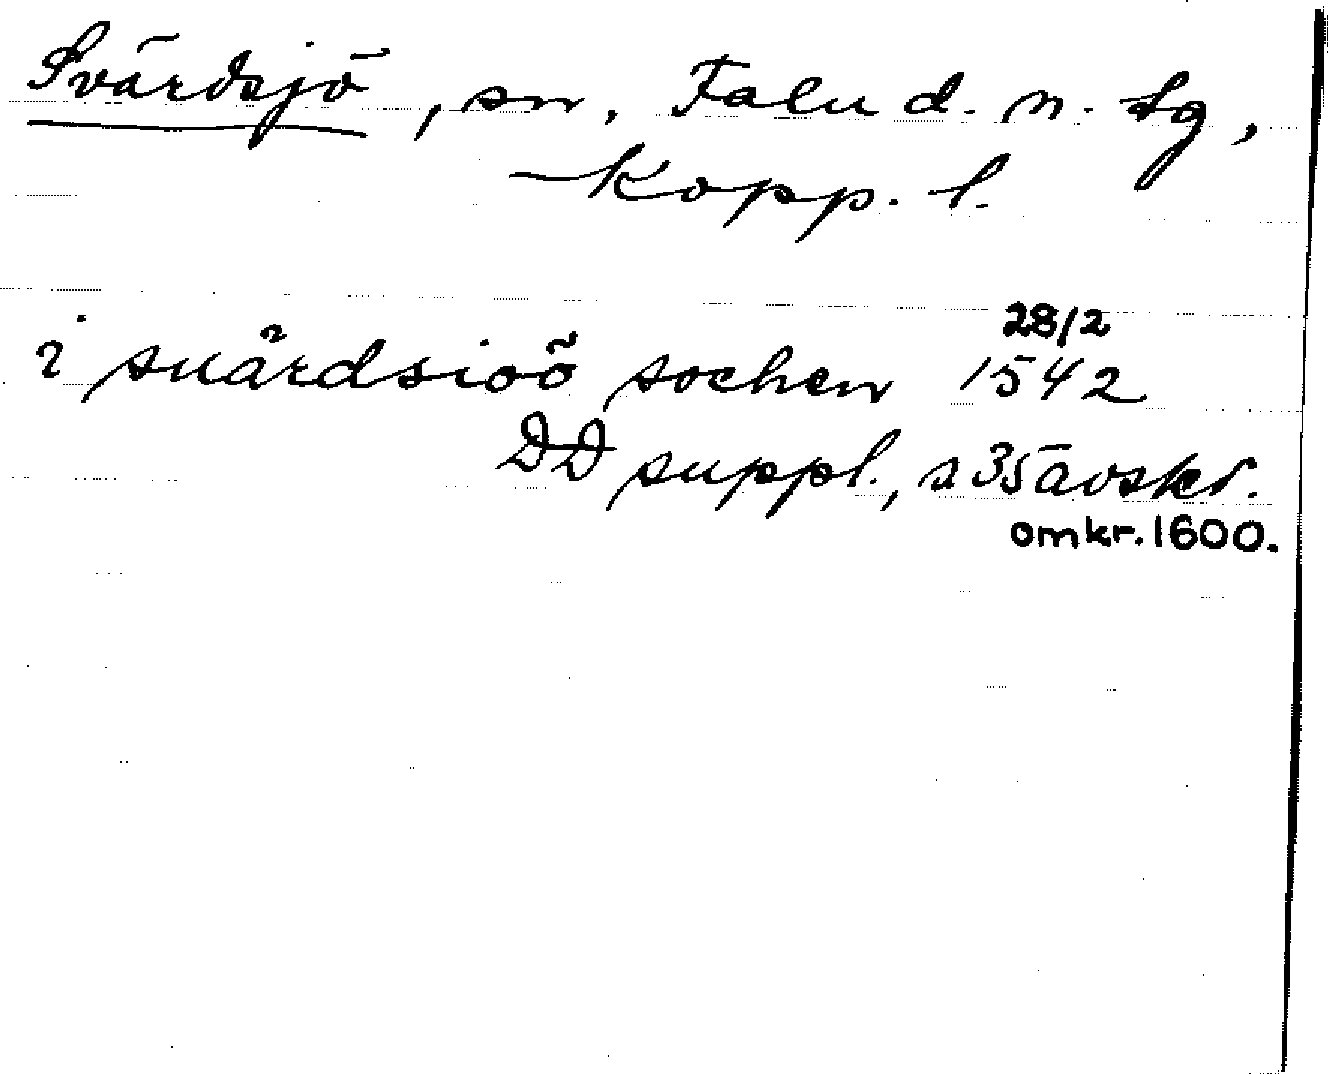 Svärdsjö, sn, Falu d. n. tg,
Kopp. l.
28/2
i suärdsioö sochen 1542
DD suppl., s 35 avskr.
omkr. 1600.